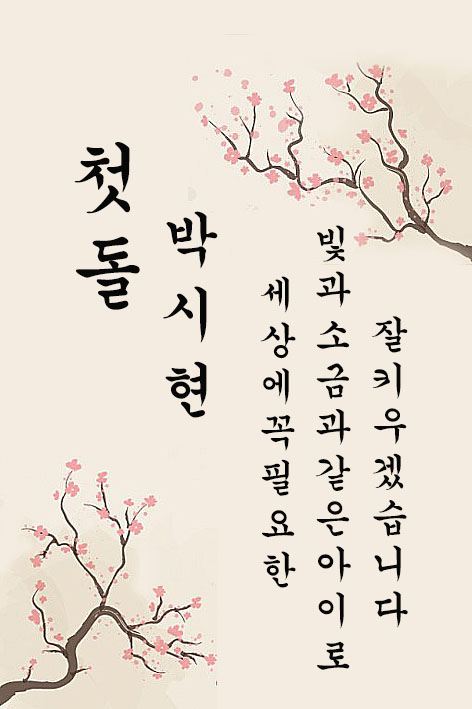 첫돌
박시현
세상에꼭필요한
빛과소금과같은아이로
잘키우겠습니다